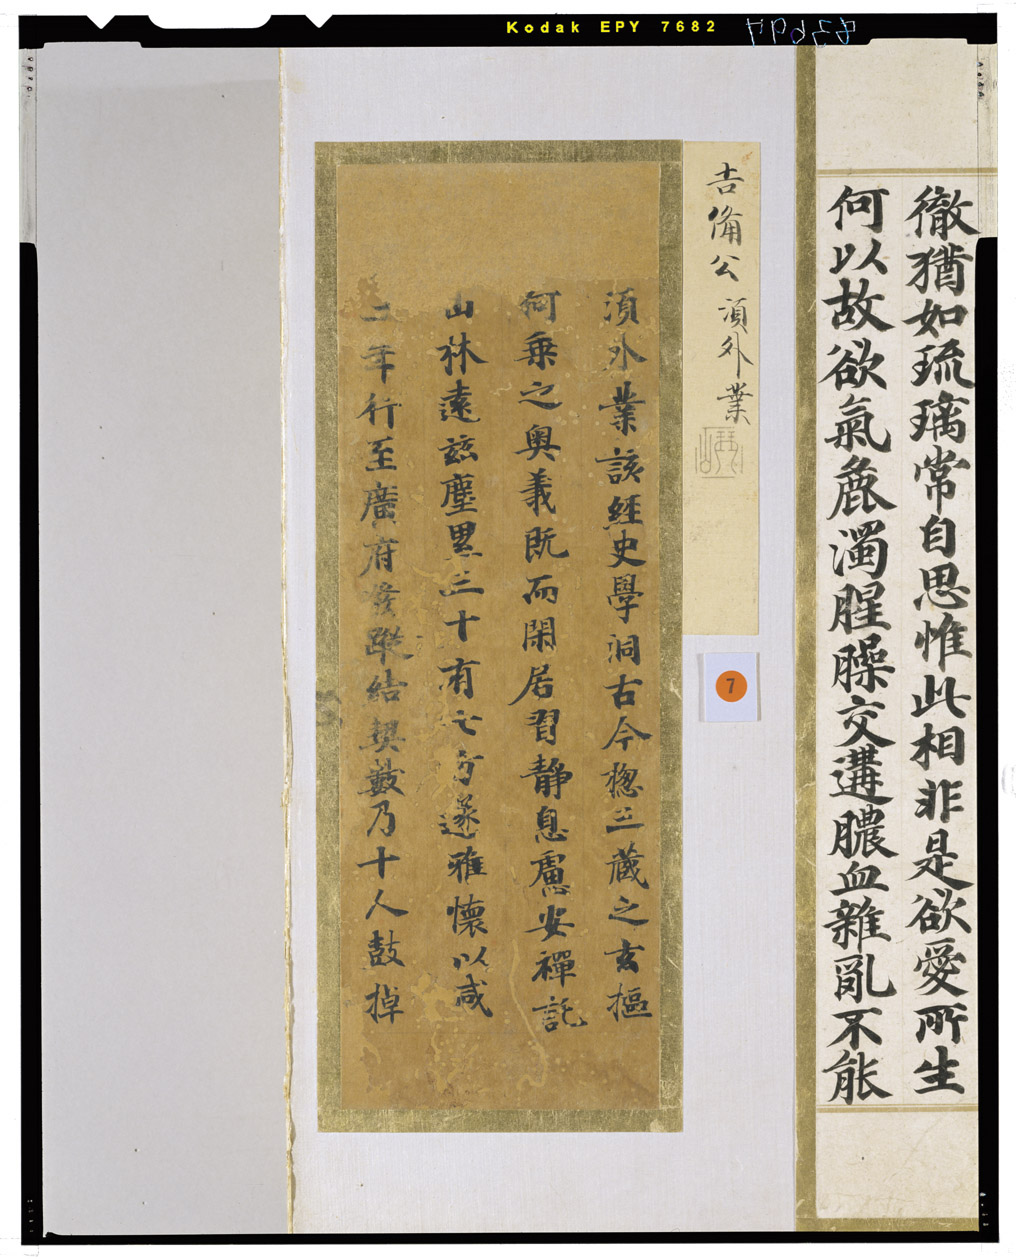 Kodak EPY 7682
徹猶如琉璃常自思惟此相非是欲愛所生
何以故欲氣麁濁腥臊交遘膿血雜亂不能
吉備公 須外業
7
須外業該經史學洞古今惣三蔵之玄樞
何乗之奥義既而閑居習静息慮安禪託
山林遠兹塵累三十有七方遂雅懷以咸
二年行至廣府發蹤結契數乃十人鼓掉